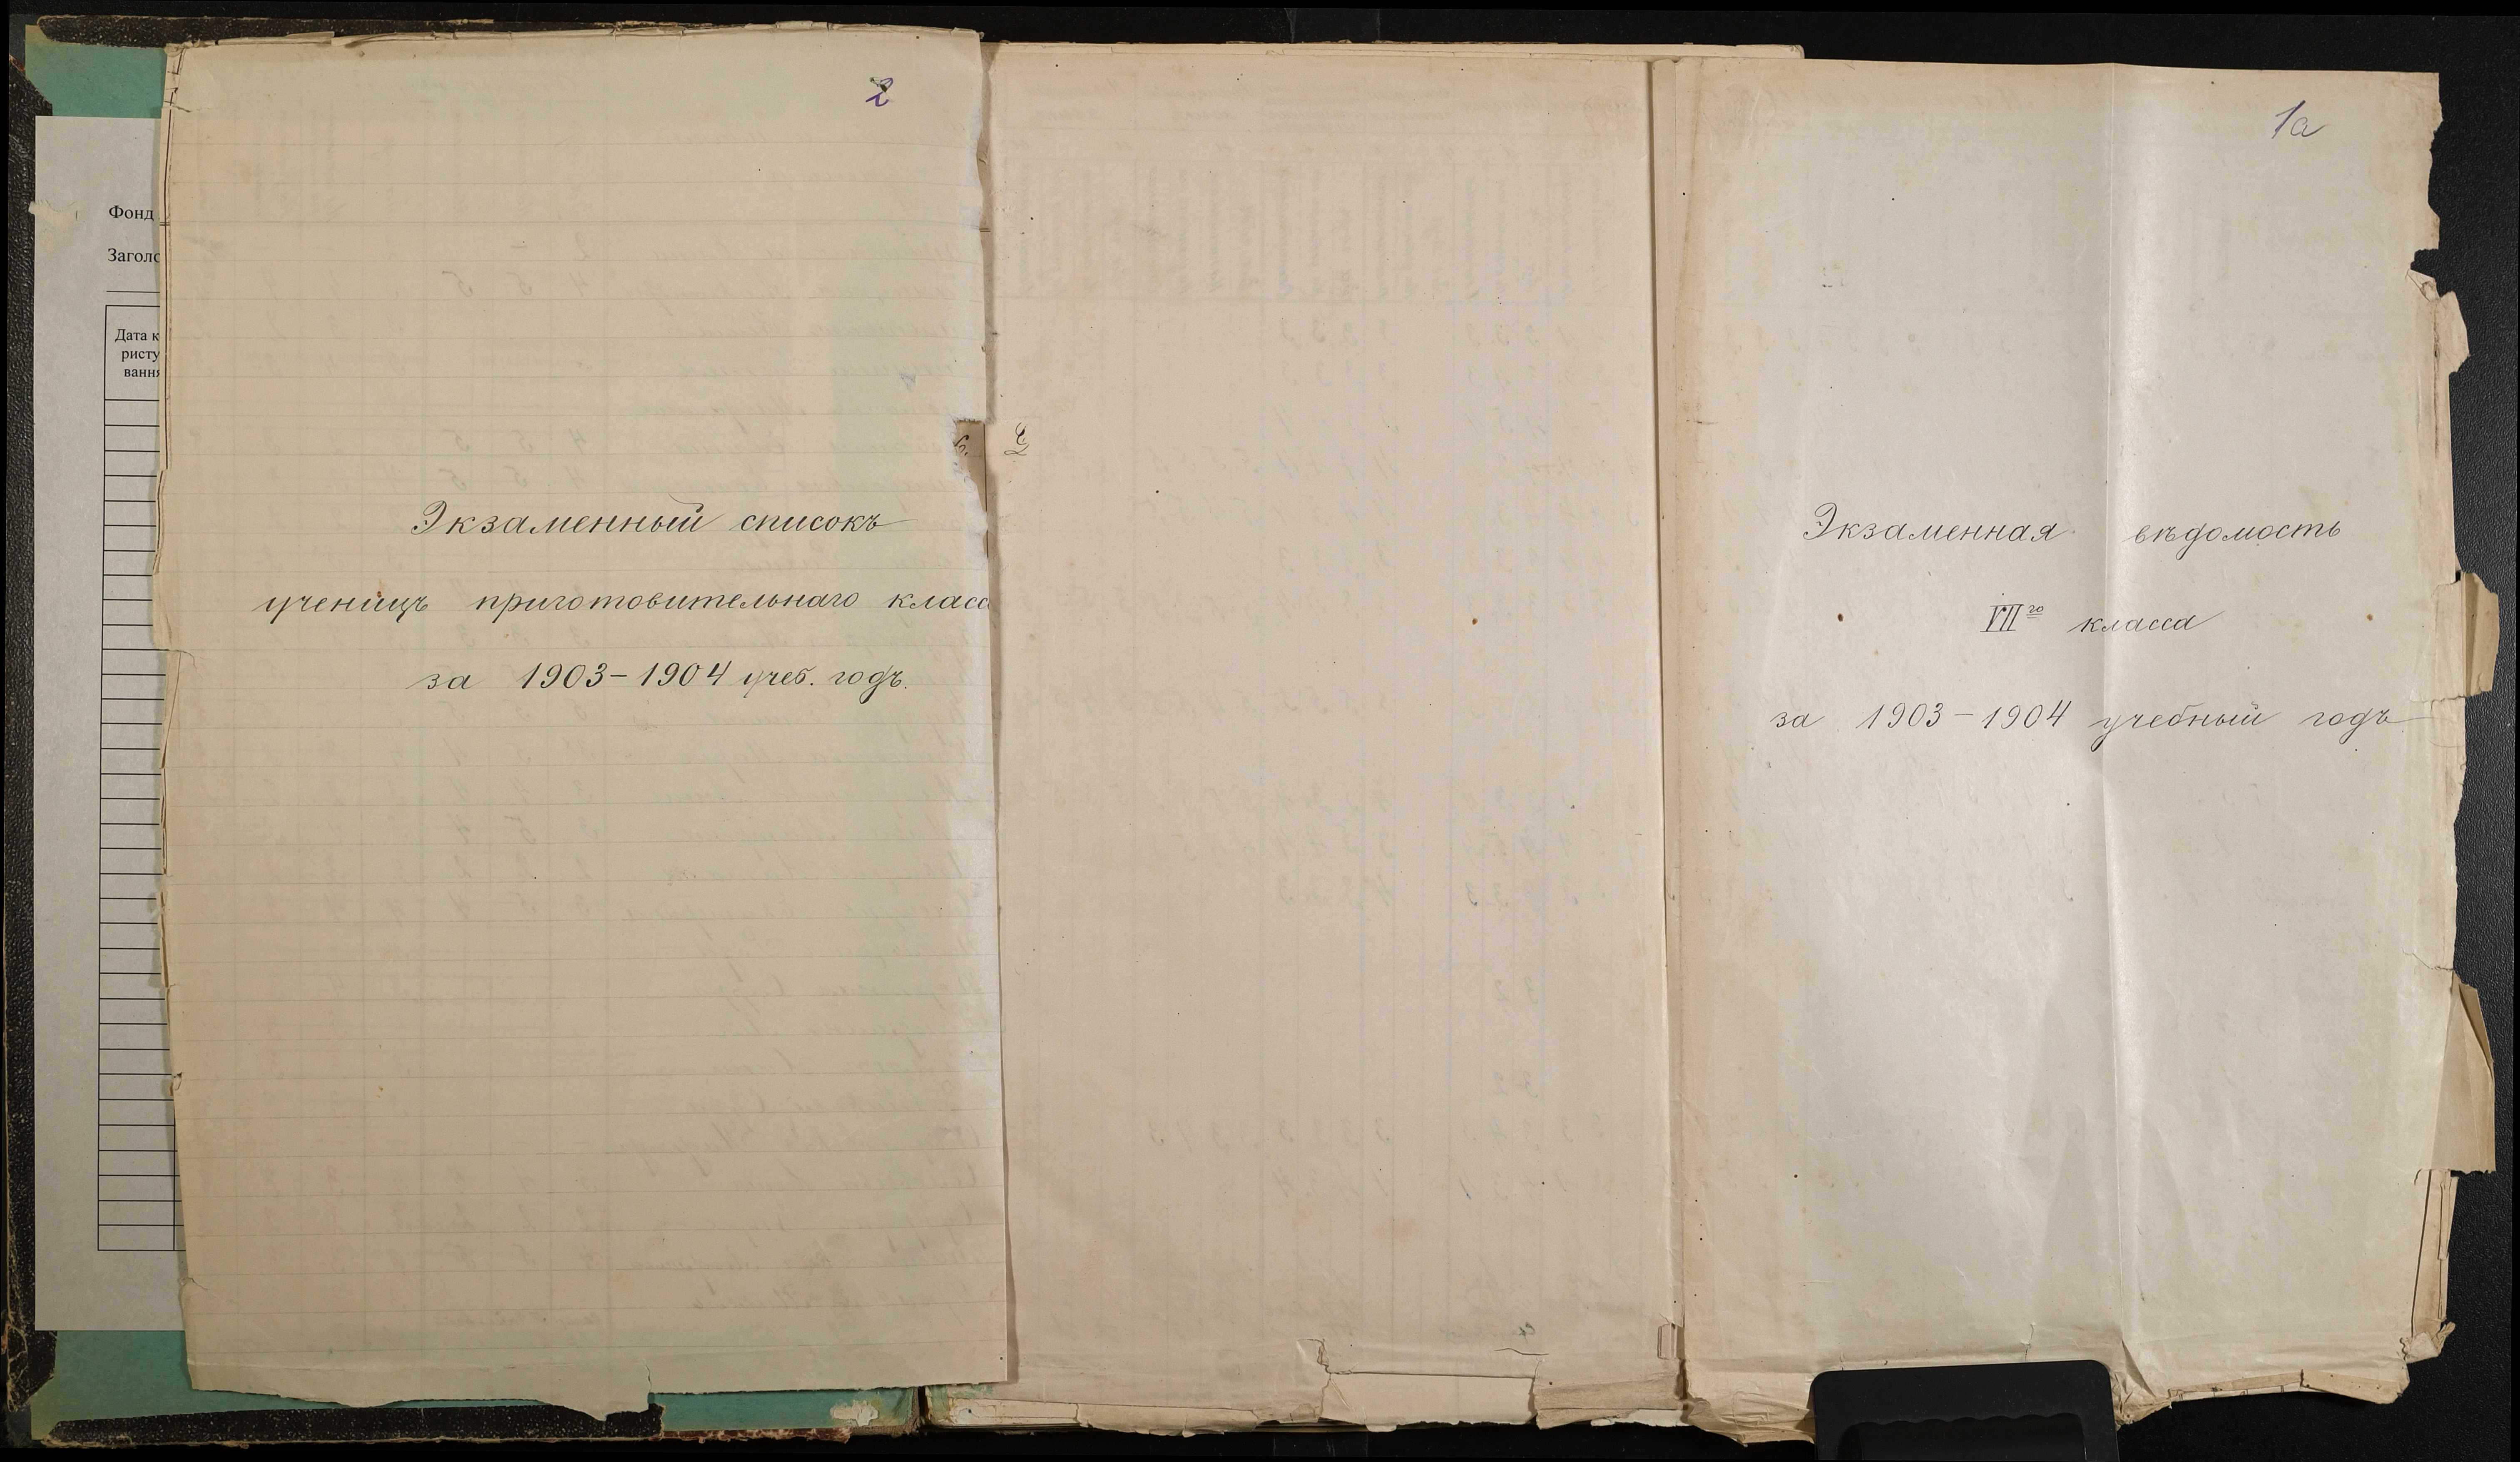 Фонд
Заголо
Дата к
ристу
вання
2
Экзаменный списокъ
ученицъ приготовительнаго класс
за 1903-1904 учеб. годъ.
1а
Экзаменная вѣдомость
VII го класса
за 1903-1904 учебный годъ